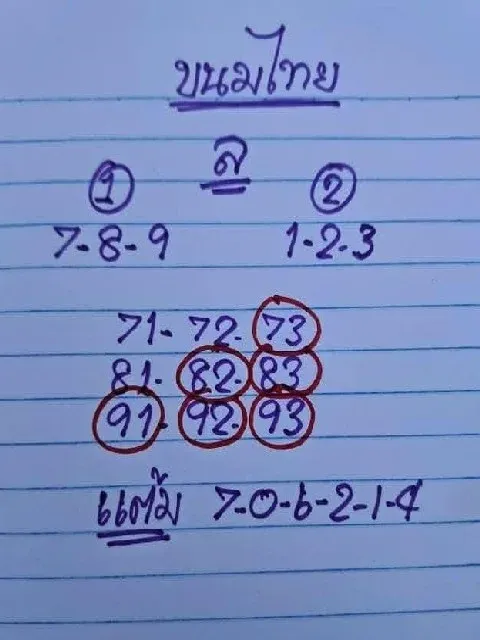 ขนมไทย
ล
1 2
7-8-9 1-2-3
71-72-73
81-82-83
91-92-93
แต้ม 7-0-6-2-1-4